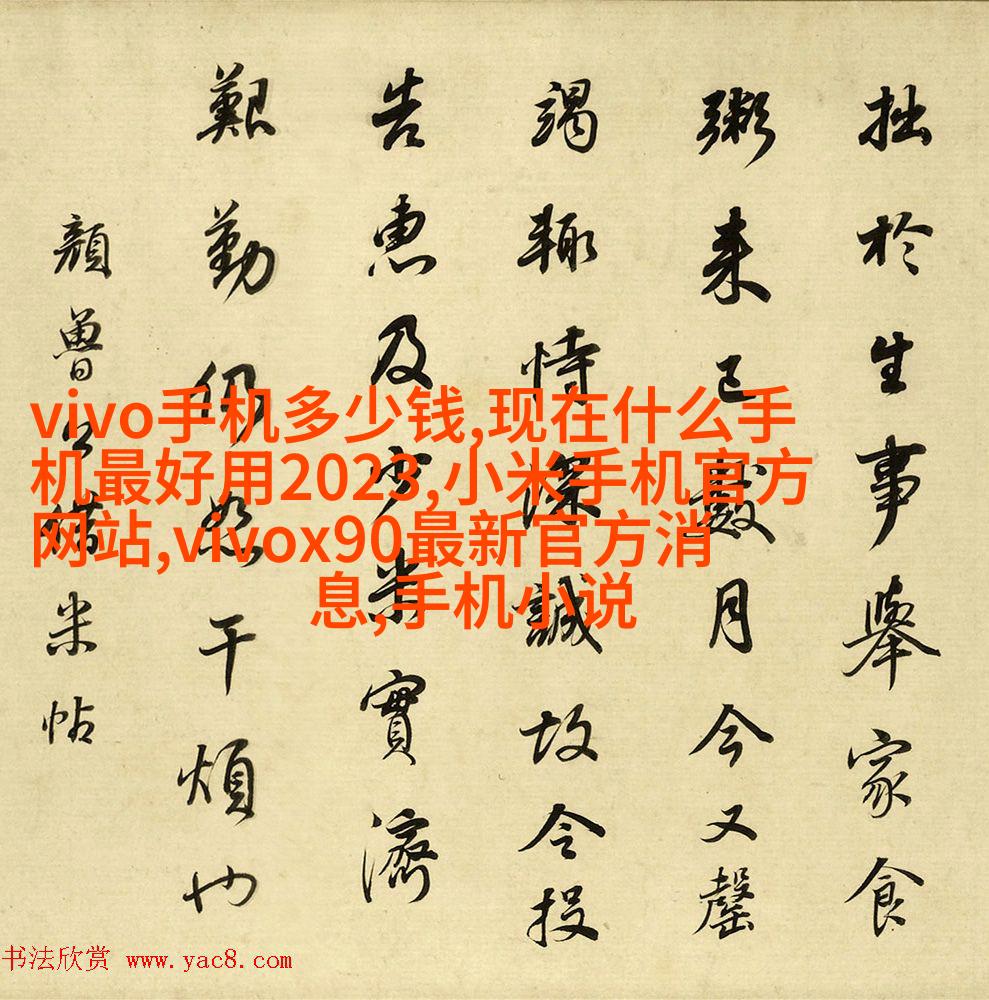 拙於生事舉家食
粥来已數月今又罄
竭輒恃深誠故令投
告惠及少米實濟
艱勤仍恕干煩也
顏魯公米帖
vivo手机多少钱,现在什么手
机最好用2023,小米手机官方
网站,vivox90最新官方消
息,手机小说
书法欣赏 www.yac8.com